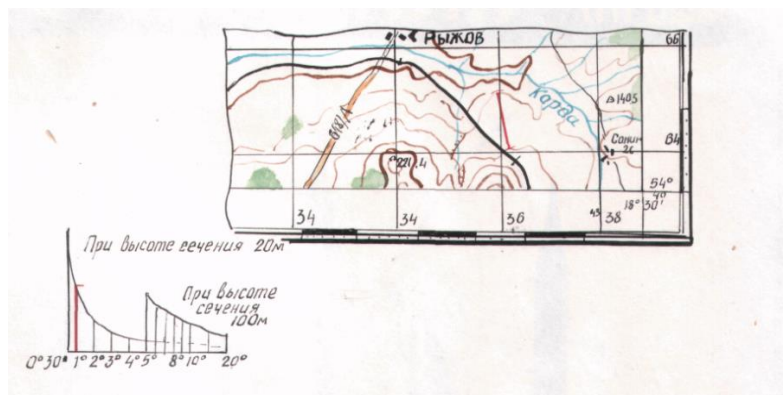 Рыжов
66
Корда
140.5
Сонин
26
64
221,4
54°
18°30'
34
34
36
45
38
При высоте сечения 20м
При высоте
сечения
100м
0°30' 1° 2° 3° 4° 5° 8° 10° 20°